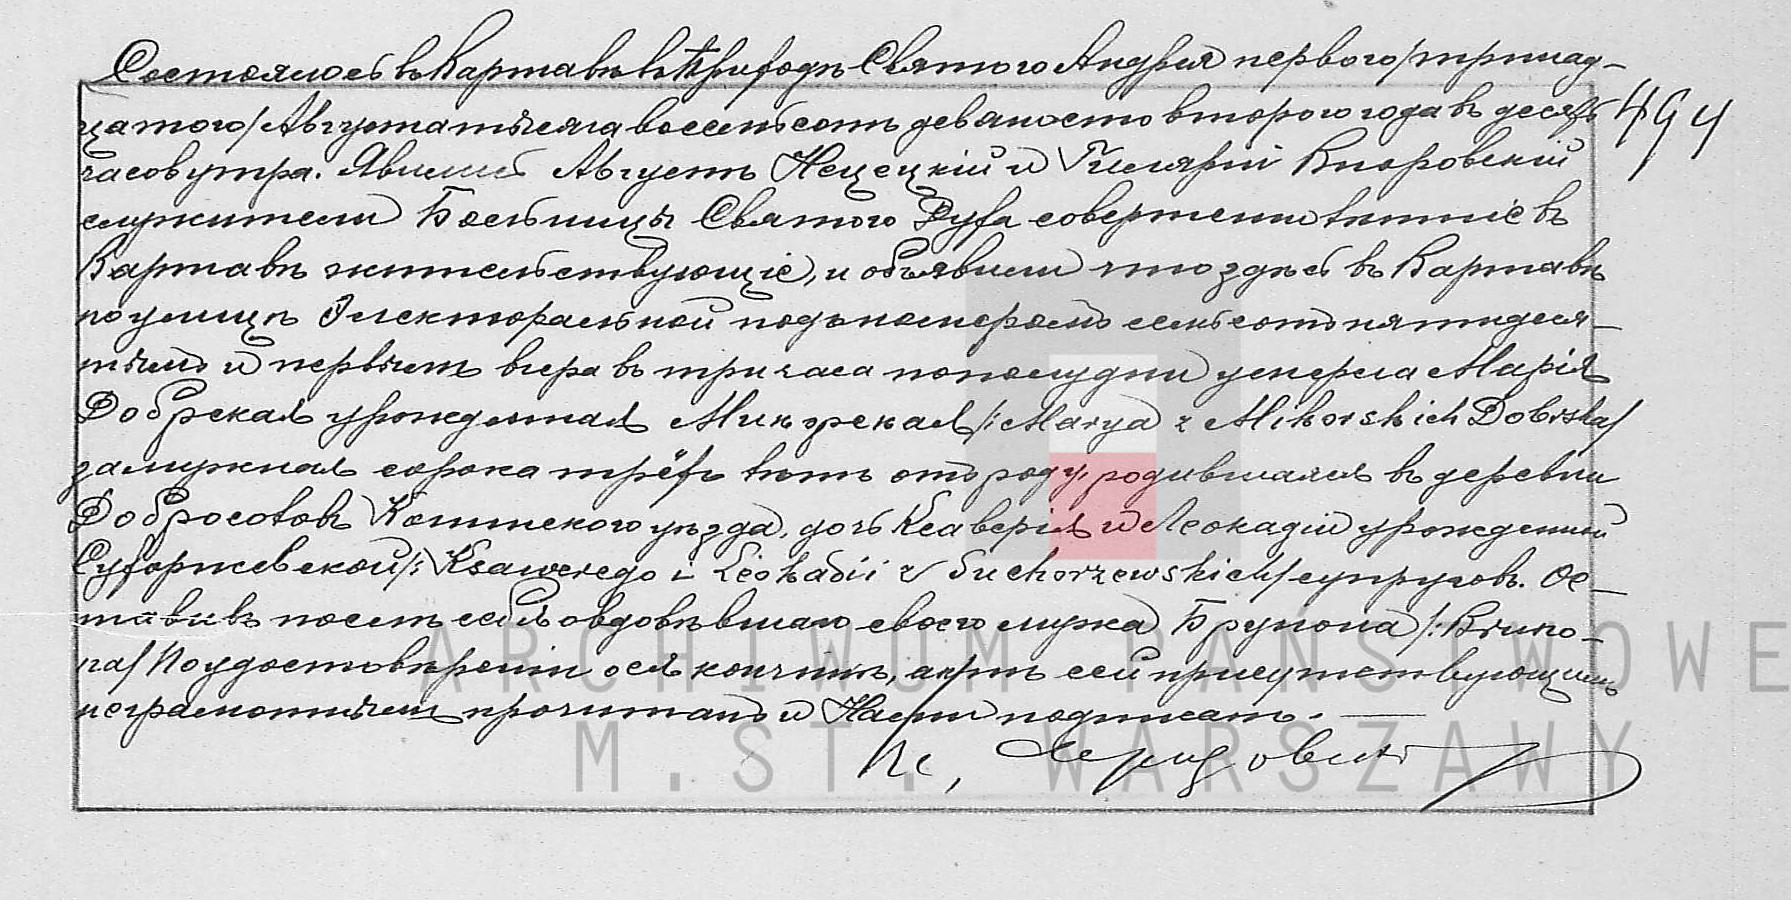 Состоялось въ Варшавѣ въ Приходѣ Святого Андрея первого /тринад-
цатого/ Августа мѣсяца восемьсотъ девяносто второго года въ десять 494
часовъ утра. Явились Августъ Нецецкій и Гиларій Кноровскій
служители Больницы Святого Духа совершеннолѣтніе въ
Варшавѣ жительствующіе, и объявили что здѣсь въ Варшавѣ
по улицѣ Электоральной подъ номеромъ семьсотъ пятьдеся-
тымъ и первымъ вчера въ три часа пополудни умерла Марія
Добрская урожденная Микорская /: Marya z Mikorskich Dobrska/
замужная сорока трёхъ лѣтъ отъ роду, родившаяся въ деревни
Добросоловъ Конинского уѣзда, дочь Ксаверія и Леокадіи урожденной
Сухоржевской /: Ksawerego i Leokadii z Suchorzewskich/ супруговъ. Ос-
тавивъ послѣ себя овдовѣвшаго своего мужа Бруно́на /: Bruno-
na/ По удостовѣреніи о ея кончинѣ, актъ сей присутствующимъ
неграмотнымъ прочитанъ и Нами подписанъ.
Кс,
ARCHIWUM PAŃSTWOWE
M.ST. WARSZAWY